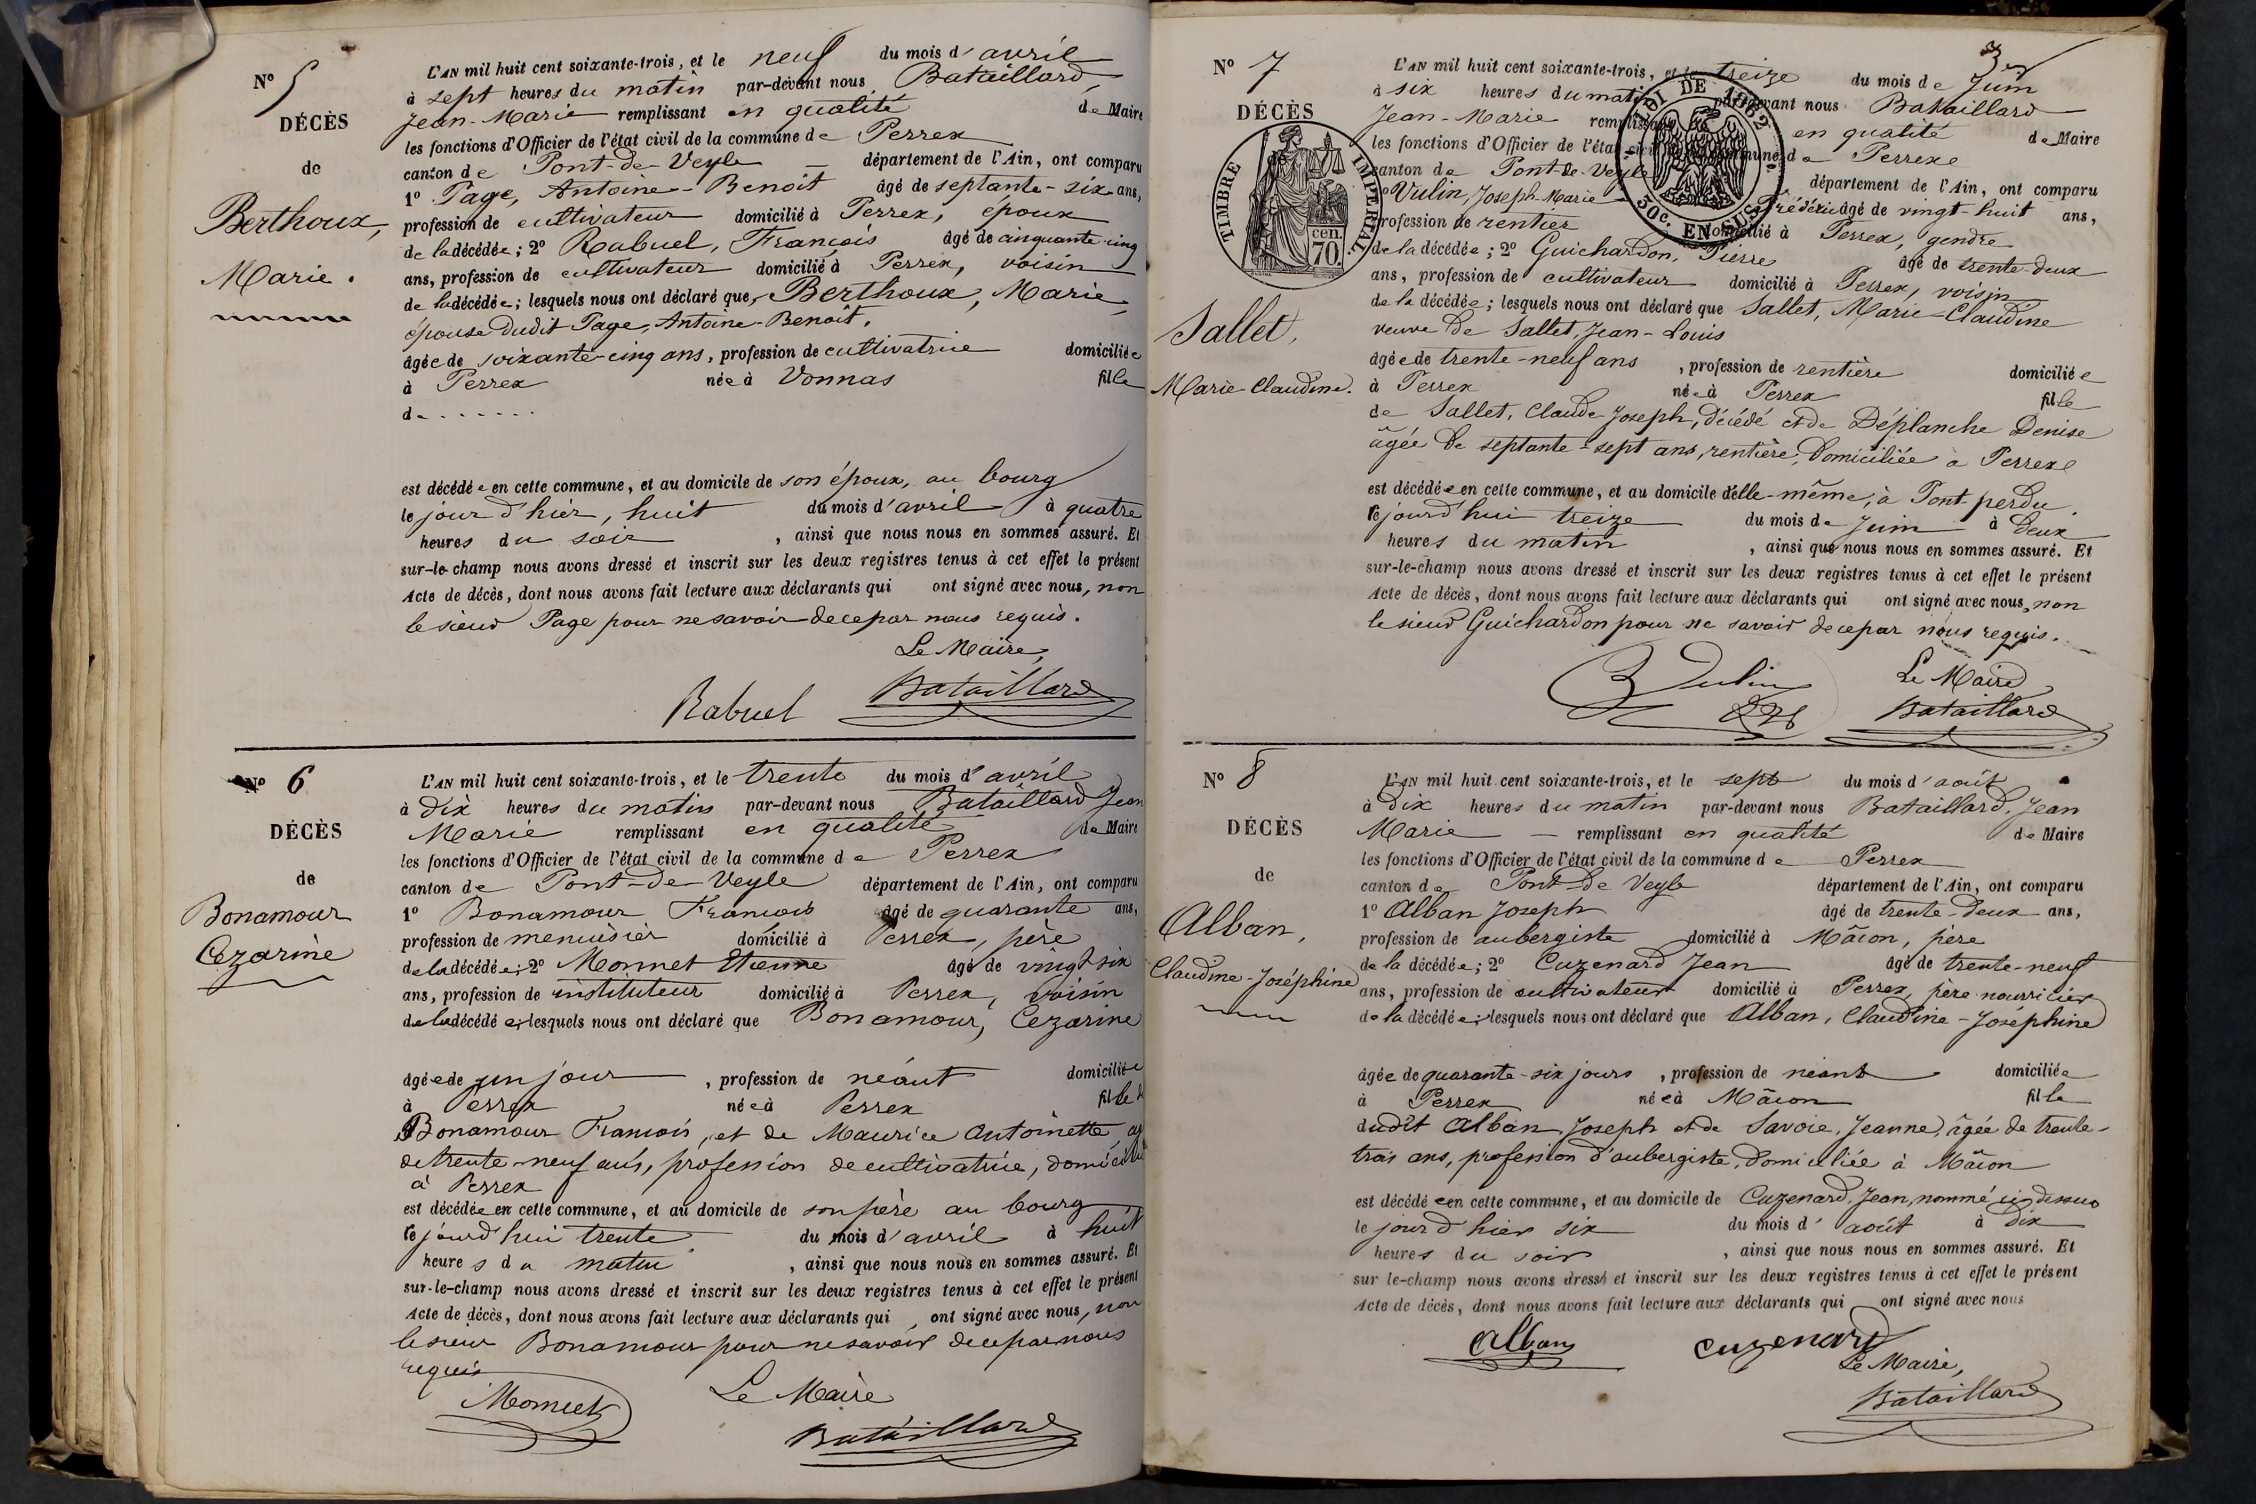 N° 5
DÉCÈS
de
Berthoux,
Marie.
L'AN mil huit cent soixante-trois, et le neuf du mois d'avril
à sept heures du matin par-devant nous Bataillard,
Jean-Marie remplissant en qualité de Maire
les fonctions d'Officier de l'état civil de la commune de Perrex
canton de Pont-de-Veyle département de l'Ain, ont comparu
1° Page, Antoine-Benoit âgé de septante-six ans,
profession de cultivateur domicilié à Perrex, époux
de la décédée; 2° Rabuel, François âgé de cinquante-cinq
ans, profession de cultivateur domicilié à Perrex, voisin
de la décédée; lesquels nous ont déclaré que Berthoux, Marie,
épouse dudit Page, Antoine-Benoit,
âgée de soixante-cinq ans, profession de cultivatrice domiciliée
à Perrex née à Vonnas fille
de .......
est décédée en cette commune, et au domicile de son époux, au bourg
le jour d'hier, huit du mois d'avril à quatre
heures du soir, ainsi que nous nous en sommes assuré. Et
sur-le-champ nous avons dressé et inscrit sur les deux registres tenus à cet effet le présent
Acte de décès, dont nous avons fait lecture aux déclarants qui ont signé avec nous, non
le sieur Page pour ne savoir de ce par nous requis.
Le Maire,
Rabuel Bataillard
N° 6
DÉCÈS
de
Bonamour
Cezarine
L'AN mil huit cent soixante-trois, et le trente du mois d'avril
à dix heures du matin par-devant nous Bataillard Jean
Marie remplissant en qualité de Maire
les fonctions d'Officier de l'état civil de la commune de Perrex
canton de Pont-de-Veyle département de l'Ain, ont comparu
1° Bonamour François âgé de quarante ans,
profession de menuisier domicilié à Perrex, père
de la décédée; 2° Monnet Etienne âgé de vingt six
ans, profession de instituteur domicilié à Perrex, voisin
de la décédée; lesquels nous ont déclaré que Bonamour, Cezarine
âgée de un jour, profession de néant domiciliée
à Perrex née à Perrex fille de
Bonamour François, et de Maurice Antoinette
de trente-neuf ans, profession de cultivatrice, domiciliée
à Perrex
est décédée en cette commune, et au domicile de son père au bourg
le jourd'hui trente du mois d'avril à huit
heures du matin, ainsi que nous nous en sommes assuré. Et
sur-le-champ nous avons dressé et inscrit sur les deux registres tenus à cet effet le présent
Acte de décès, dont nous avons fait lecture aux déclarants qui ont signé avec nous, non
le sieur Bonamour pour ne savoir de ce par nous
requis
Monnet Le Maire
Bataillard
N° 7
DÉCÈS
de
TIMBRE IMPÉRIAL
70 cen.
LOI DE 1862
50c. EN SUS
Sallet,
Marie-Claudine.
L'AN mil huit cent soixante-trois, et le treize du mois de Juin
à six heures du matin par-devant nous Bataillard
Jean-Marie remplissant en qualité de Maire
les fonctions d'Officier de l'état civil de la commune de Perrex
canton de Pont-de-Veyle département de l'Ain, ont comparu
1° Vulin, Joseph-Marie Frédéric âgé de vingt-huit ans,
profession de rentier domicilié à Perrex, gendre
de la décédée; 2° Guichardon, Pierre âgé de trente-deux
ans, profession de cultivateur domicilié à Perrex, voisin
de la décédée; lesquels nous ont déclaré que Sallet, Marie-Claudine
veuve de Sallet, Jean-Louis
âgée de trente-neuf ans, profession de rentière domiciliée
à Perrex née à Perrex fille
de Sallet, Claude Joseph, décédé et de Déplanche Denise
âgée de septante-sept ans, rentière, domiciliée à Perrex
est décédée en cette commune, et au domicile d'elle-même, à Pont-perdu.
le jourd'hui treize du mois de Juin à deux
heures du matin, ainsi que nous nous en sommes assuré. Et
sur-le-champ nous avons dressé et inscrit sur les deux registres tenus à cet effet le présent
Acte de décès, dont nous avons fait lecture aux déclarants qui ont signé avec nous, non
le sieur Guichardon pour ne savoir de ce par nous requis.
Vulin Le Maire
Bataillard
N° 8
DÉCÈS
de
Alban,
Claudine-Joséphine
L'AN mil huit cent soixante-trois, et le sept du mois d'août
à dix heures du matin par-devant nous Bataillard, Jean
Marie remplissant en qualité de Maire
les fonctions d'Officier de l'état civil de la commune de Perrex
canton de Pont-de Veyle département de l'Ain, ont comparu
1° Alban Joseph âgé de trente-deux ans,
profession de aubergiste domicilié à Mâcon, père
de la décédée; 2° Cuzenard Jean âgé de trente-neuf
ans, profession de cultivateur domicilié à Perrex, père nourricier
de la décédée; lesquels nous ont déclaré que Alban, Claudine-Joséphine
âgée de quarante-six jours, profession de néant domiciliée
à Perrex née à Mâcon fille
dudit Alban, Joseph et de Savoie, Jeanne, âgée de trente-
trois ans, profession d'aubergiste, domiciliée à Mâcon
est décédée en cette commune, et au domicile de Cuzenard, Jean, nommé ci-dessus
le jour d'hier six du mois d'août à dix
heures du soir, ainsi que nous nous en sommes assuré. Et
sur le-champ nous avons dressé et inscrit sur les deux registres tenus à cet effet le présent
Acte de décès, dont nous avons fait lecture aux déclarants qui ont signé avec nous
Alban Cuzenard
Le Maire,
Bataillard